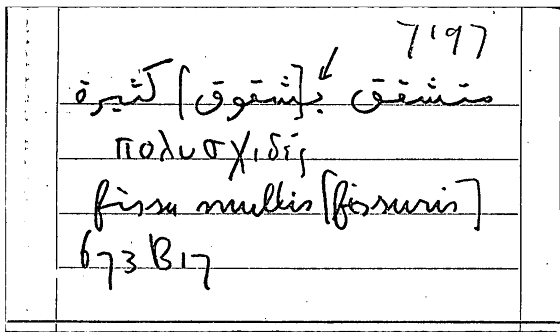 7197
متشقق بـ[شقوق] كثيرة
πολυσχιδές
fissu multis [fissuris]
673 B17